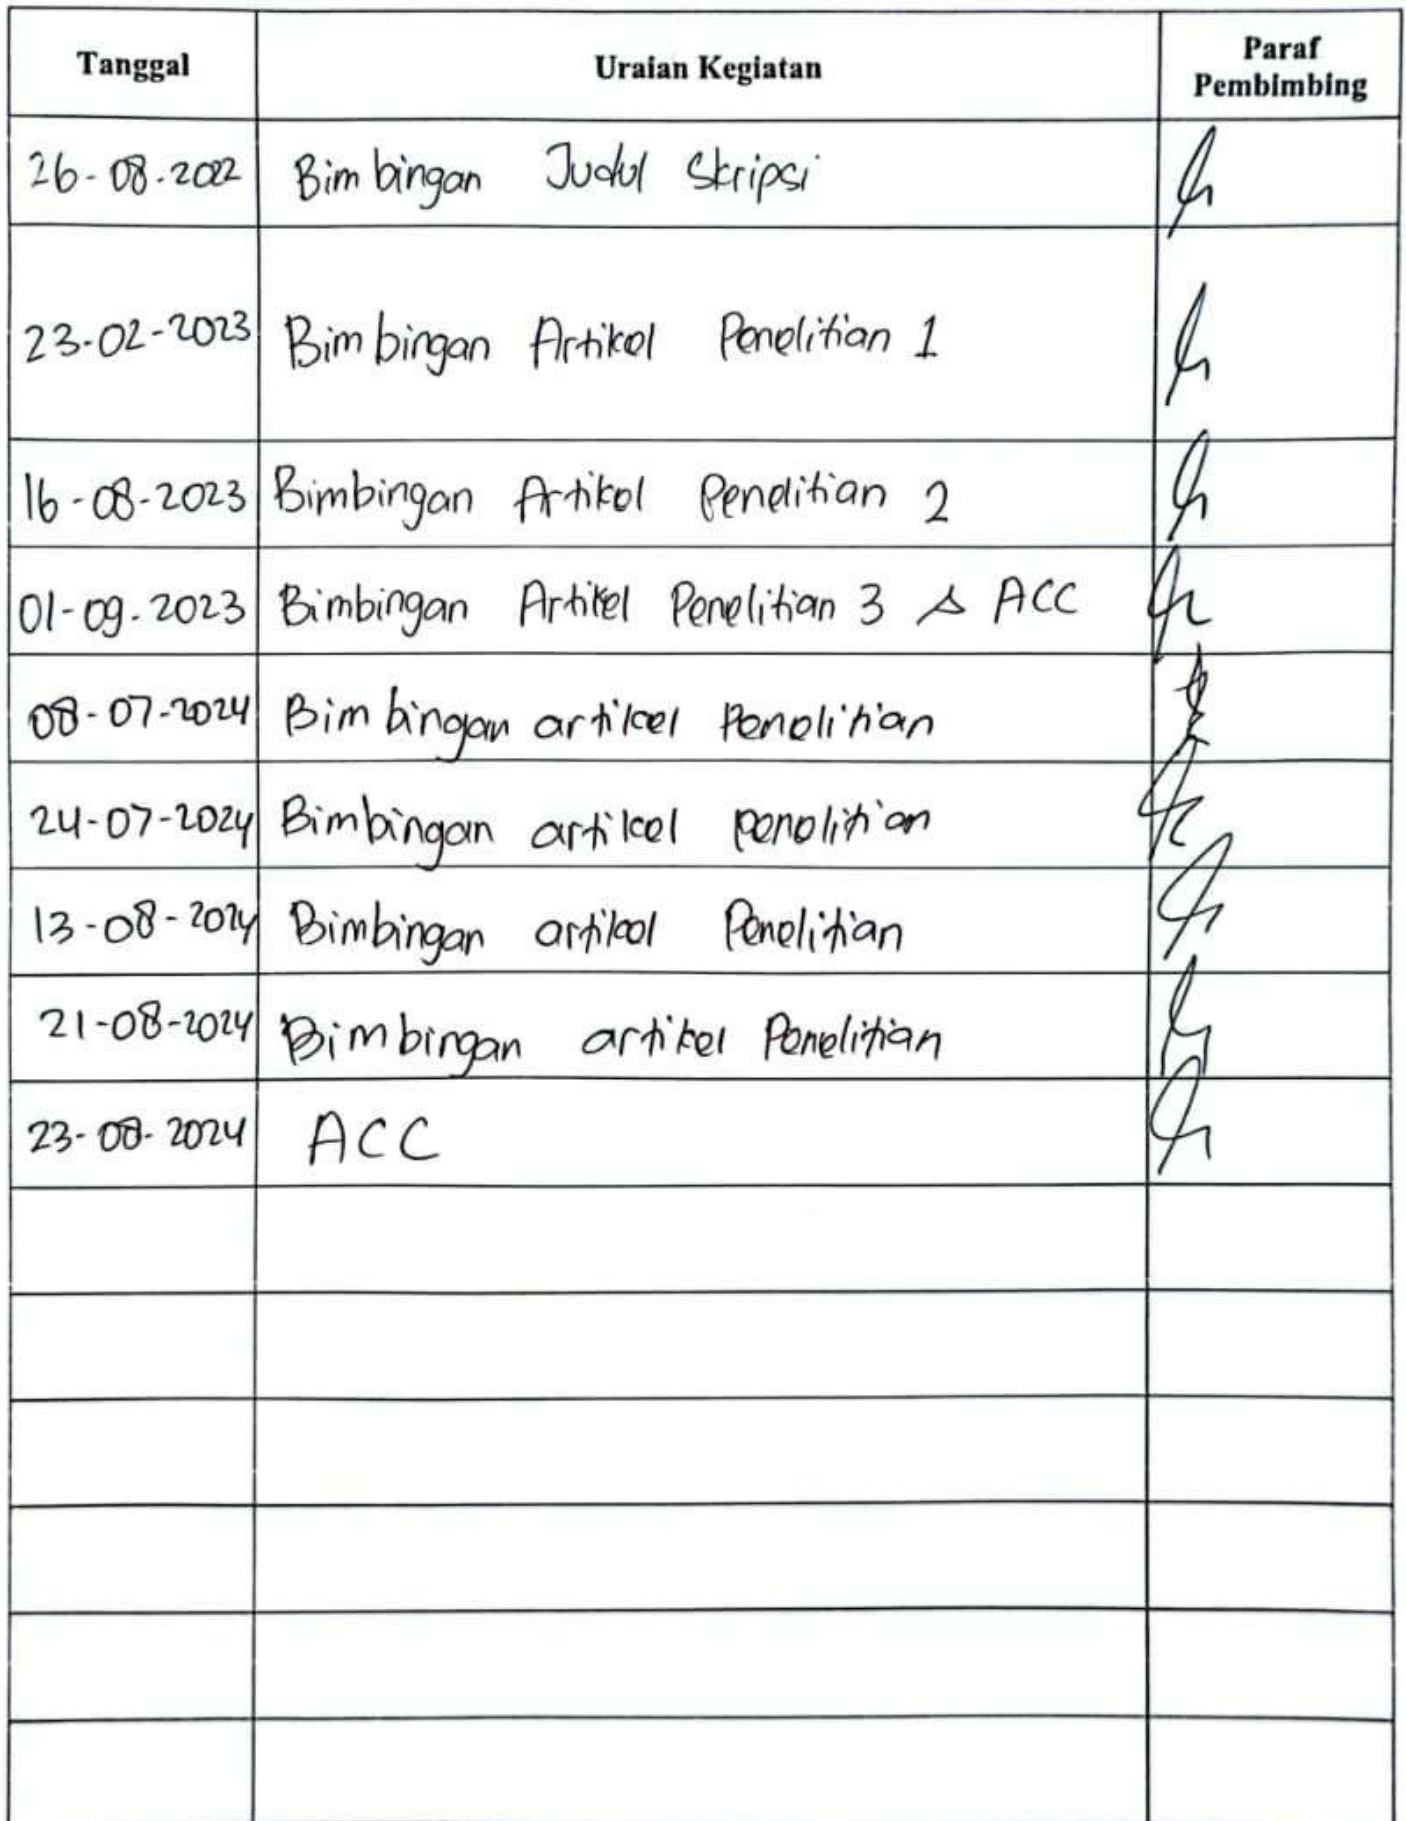 Tanggal Uraian Kegiatan Paraf
Pembimbing
26-08-2022 Bimbingan Judul Skripsi
23-02-2023 Bimbingan Artikel Penelitian 1
16-08-2023 Bimbingan Artikel Penelitian 2
01-09-2023 Bimbingan Artikel Penelitian 3 & ACC
08-07-2024 Bimbingan artikel Penelitian
24-07-2024 Bimbingan artikel penelitian
13-08-2024 Bimbingan artikel Penelitian
21-08-2024 Bimbingan artikel Penelitian
23-08-2024 ACC